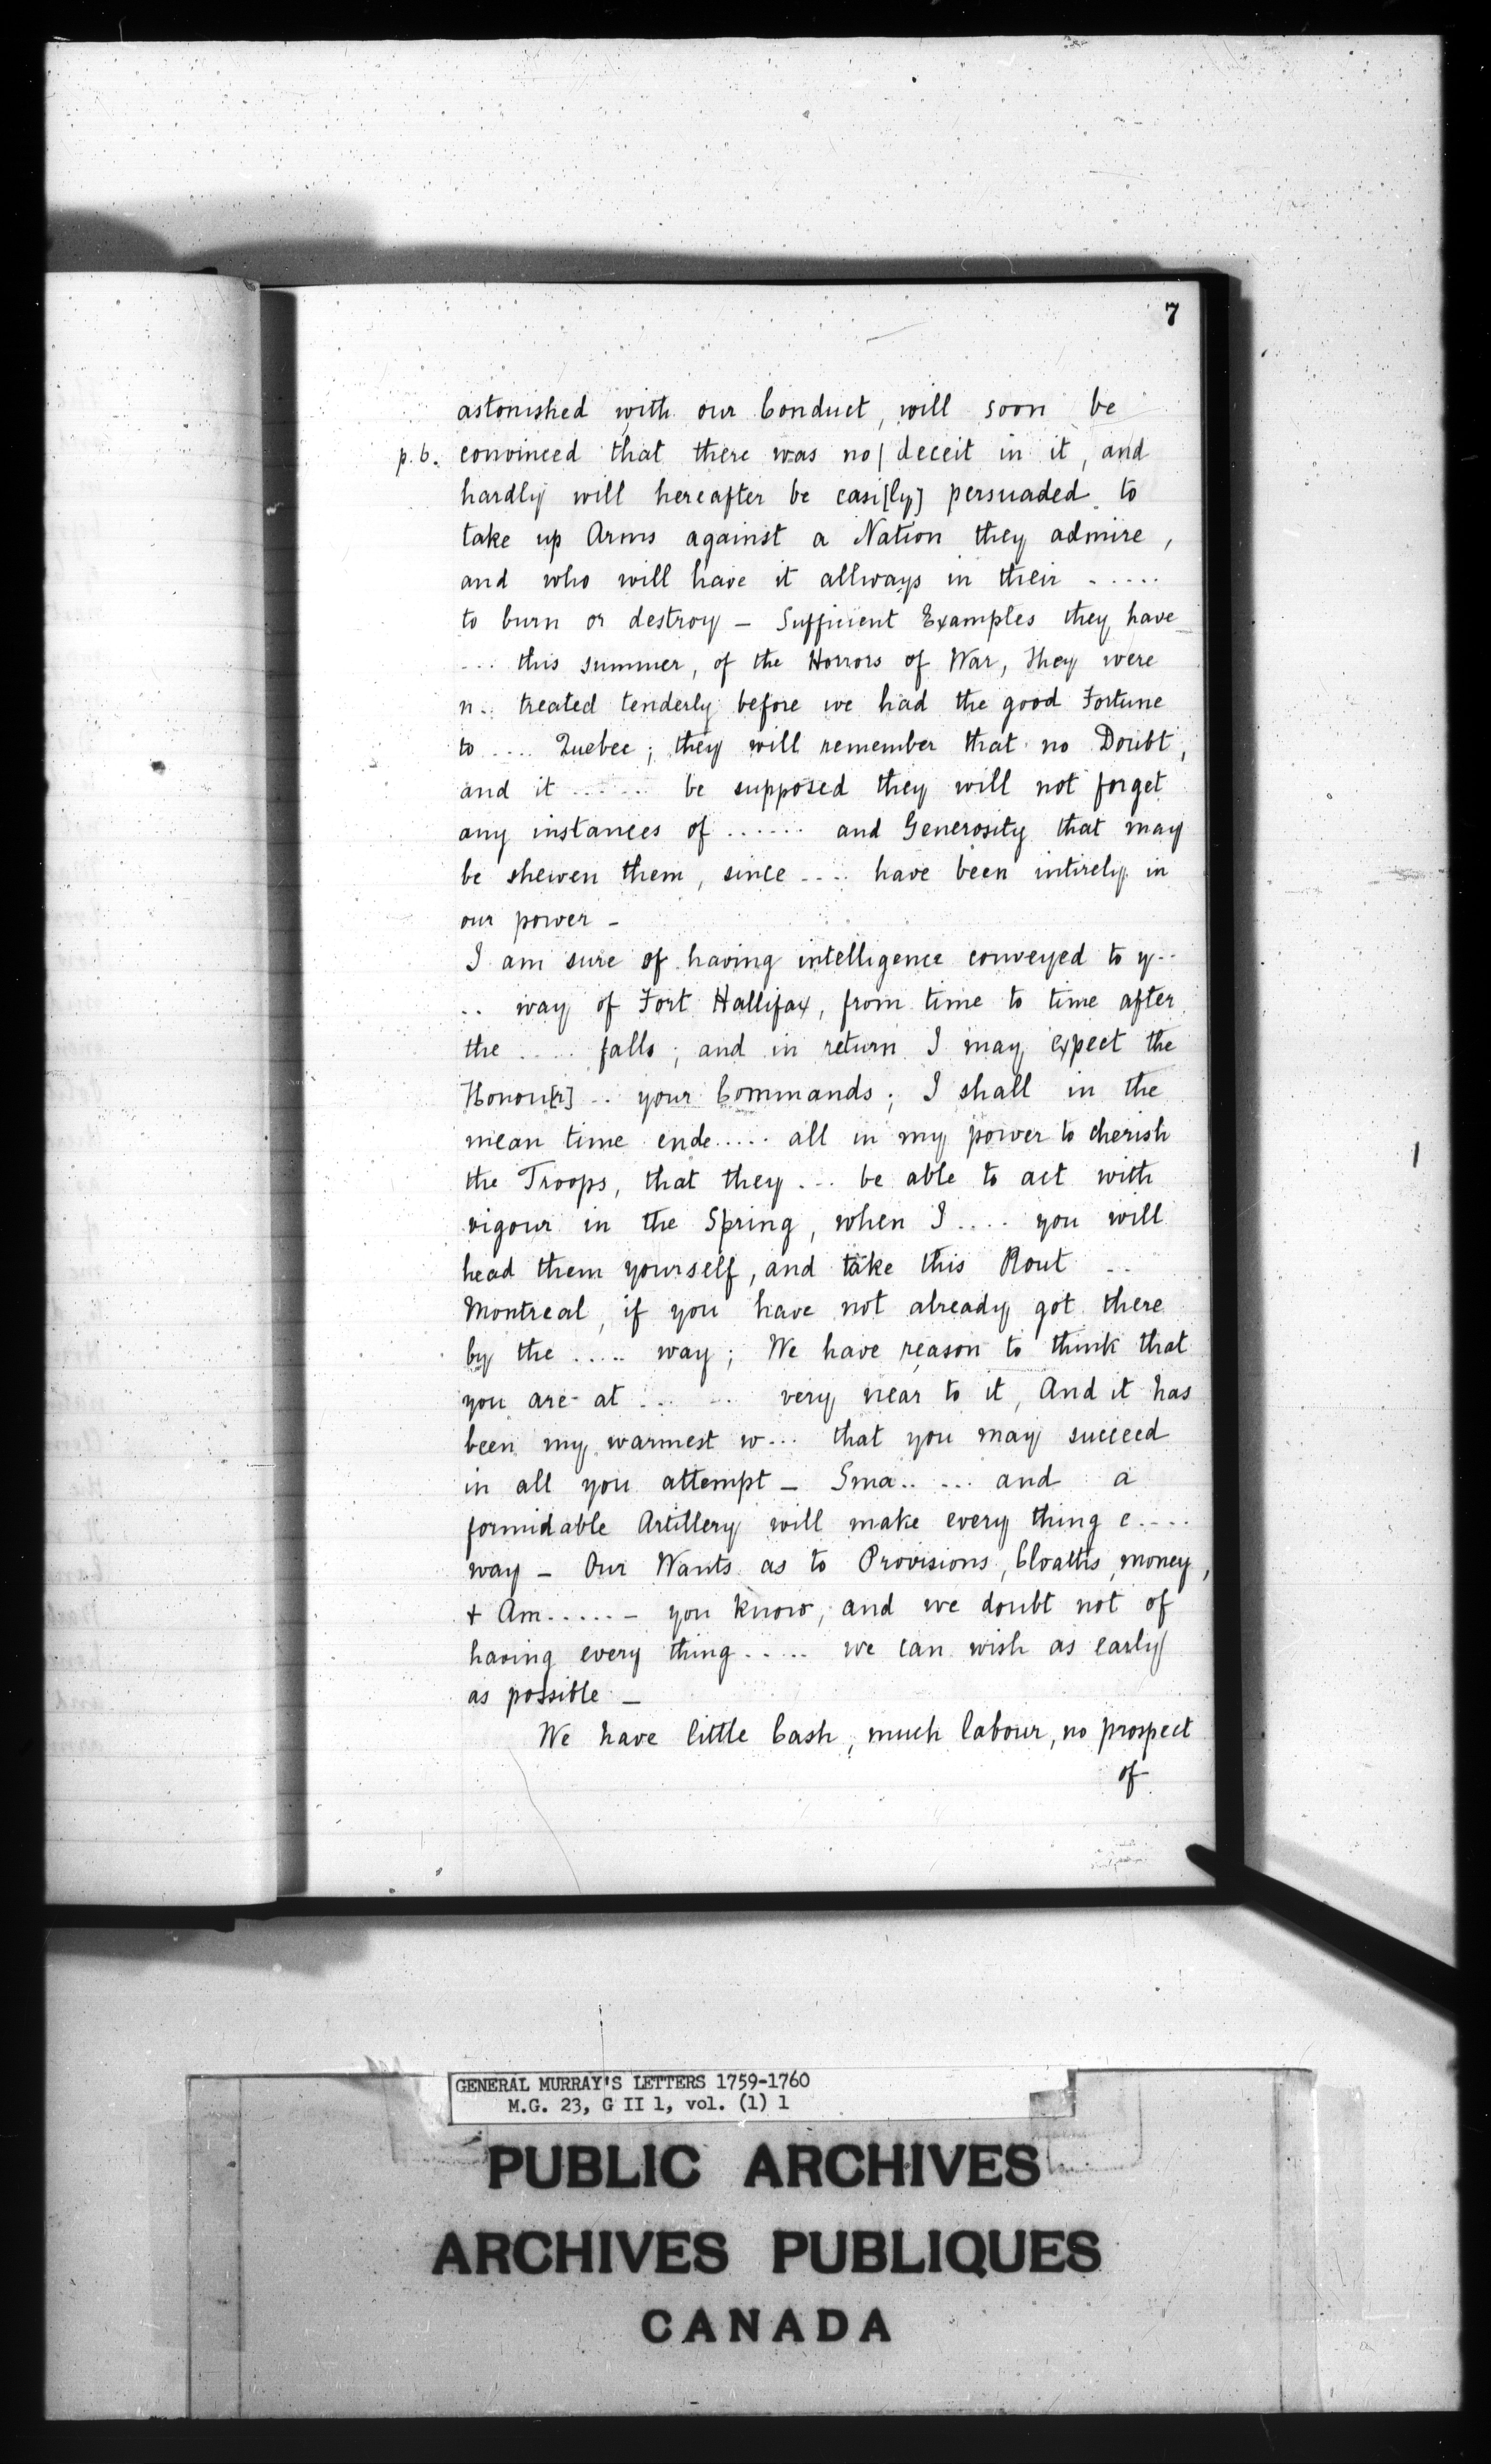 7
astonished with our Conduct, will soon be
p. 6. convinced that there was no| deceit in it, and
hardly will hereafter be easi[ly] persuaded to
take up Arms against a Nation they admire,
and who will have it allways in their .....
to burn or destroy - Sufficient Examples they have
... this summer, of the Horrors of War, they were
n.. treated tenderly before we had the good Fortune
to .... Quebec; they will remember that no Doubt,
and it ...... be supposed they will not forget
any instances of ...... and Generosity that may
be shewen them, since .... have been intirely in
our power -
I am sure of having intelligence conveyed to y..
.. way of Fort Hallifax, from time to time after
the .... falls; and in return I may expect the
Honou[r] .. your Commands; I shall in the
mean time ende..... all in my power to cherish
the Troops, that they ... be able to act with
vigour in the Spring, when I .... you will
head them yourself, and take this Rout ..
Montreal, if you have not already got there
by the ..... way; We have reason to think that
you are at ... ... very near to it, And it has
been my warmest w... that you may succeed
in all you attempt - Sma.. ... and a
formidable Artillery will make every thing e....
way - Our Wants as to Provisions, Cloaths, money,
+ Am..... - you know, and we doubt not of
having every thing ..... we can wish as early
as possible -
We have little Cash, much labour, no prospect
of
GENERAL MURRAY'S LETTERS 1759-1760
M.G. 23, G II 1, vol. (1) 1
PUBLIC ARCHIVES
ARCHIVES PUBLIQUES
CANADA